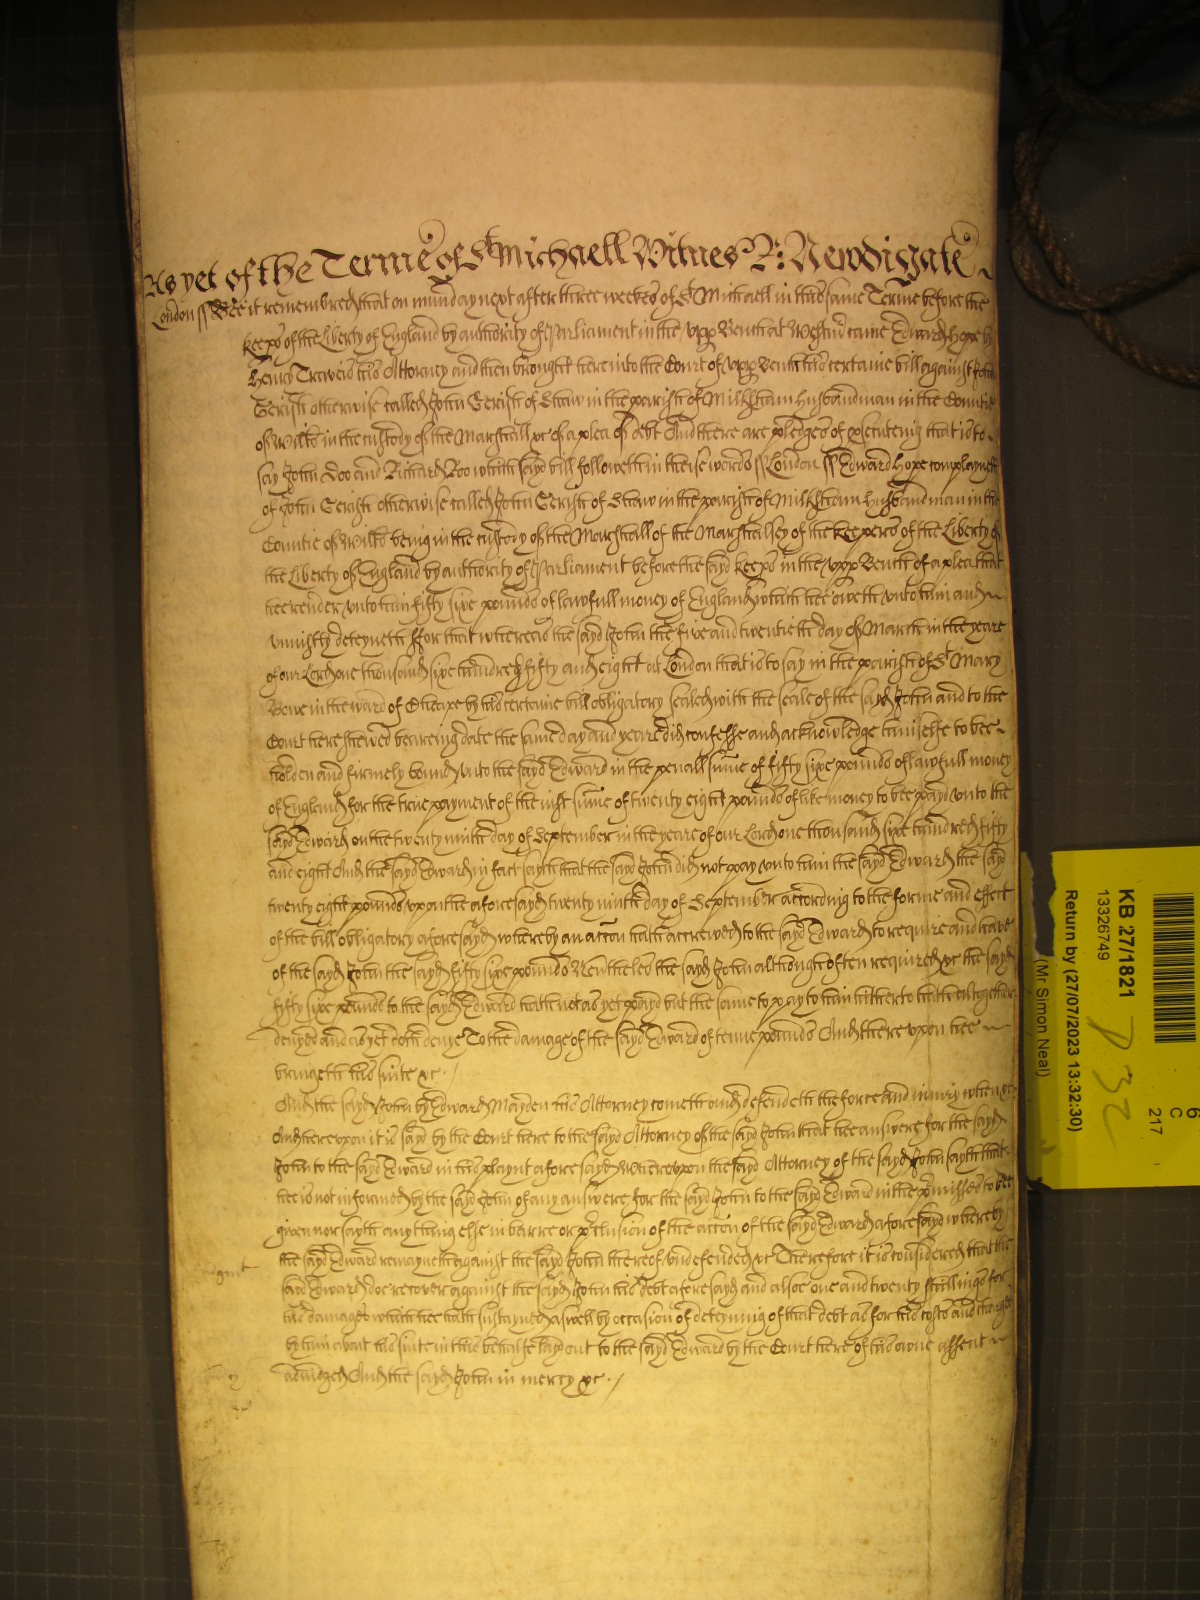 As yet of the Terme of St Michaell Witnes R: Newdigate
London ss Bee it remembred that on munday next after three weekes of St Michaell in this same Terme before the
keeps of the Liberty of England by authority of Parliament in the upp Bench at Westmr came Edward Hope by
Henry Travers his Attorney and then brought here into the Court of upp Bench his certaine bill against John
Gerish otherwise called John Gerish of Shaw in the parish of Milksham husbandman in the Countie
of Wilts in the custody of the Marshall &c of a plea of debt And there are pledges of prosecuteing that is to
say John Doo and Richard Roo which sayd bill followeth in theise words ss London ss Edward Hope complayneth
of John Gerish otherwise called John Gerish of Shaw in the parish of Milksham husbandman in the
Countie of Wilts being in the custody of the Marshall of the Marshalsey of the keepers of the Liberty of
the Liberty of England by authority of Parliament before the sayd keeps in the upp Bench of a plea that
hee render unto him fifty sixe pounds of lawfull money of England which hee oweth unto him and
uniustly deteyneth ffor that whereas the sayd John the five and twentieth day of March in the yeare
of our Lord one thousand sixe hundred fifty and eight at London that is to say in the parish of St Mary
Bowe in the ward of Cheape by his certaine bill obligatory sealed with the seale of the sayd John and to the
Court here shewed beareing date the same day and yeare did confesse and acknowledge himselfe to bee
holden and firmely bound unto the sayd Edward in the penall sume of fifty sixe pounds of lawfull money
of England for the true payment of the iust sume of twenty eight pounds of like money to bee payd unto the
sayd Edward on the twenty ninth day of September in the yeare of our Lord one thousand sixe hundred fifty
and eight And the sayd Edward in fact sayth that the sayd John did not pay unto him the sayd Edward the sayd
twenty eight pounds upon the aforesayd twenty ninth day of September according to the forme and effect
of the bill obligatory aforesayd whereby an accon hath accrewed to the sayd Edward to require and have
of the sayd John the sayd fifty sixe pounds Neverthelesse the sayd John although often required &c the sayd
fifty sixe pounds to the sayd Edward hath not as yet payd but the same to pay to him hitherto hath altogether
denyed and as yet doth denye To the damage of the sayd Edward of tenne pounds And thereupon hee
bringeth this suite &c
And the sayd John by Edward Mayden his Attorney cometh and defendeth the force and iniury when &c
And hereupon it is sayd by the Court here to the sayd Attorney of the sayd John that hee answere for the sayd
John to the sayd Edward in his playnt aforesayd Whereupon the sayd Attorney of the sayd John sayth that
hee is not informed by the sayd John of any answere for the sayd John to the sayd Edward in the pmisses to bee
given nor sayth any thing else in barre or pclusion of the accon of the sayd Edward aforesayd whereby
the sayd Edward remayneth against the sayd John thereof undefended &c Therefore it is considered that the
sayd Edward doe recover against the sayd John his debt aforesayd and alsoe one and twenty shillings for
his damages which hee hath sustayned aswell by occasion of deteyning of that debt as for his costs and charges
by him about his suite in this behalfe layd out to the sayd Edward by the Court here of his owne assent
adiudged And the sayd John in mercy &c
KB 27/1821
13326749
Return by (27/07/2023 13:32:30)
(Mr Simon Neal)
C
217